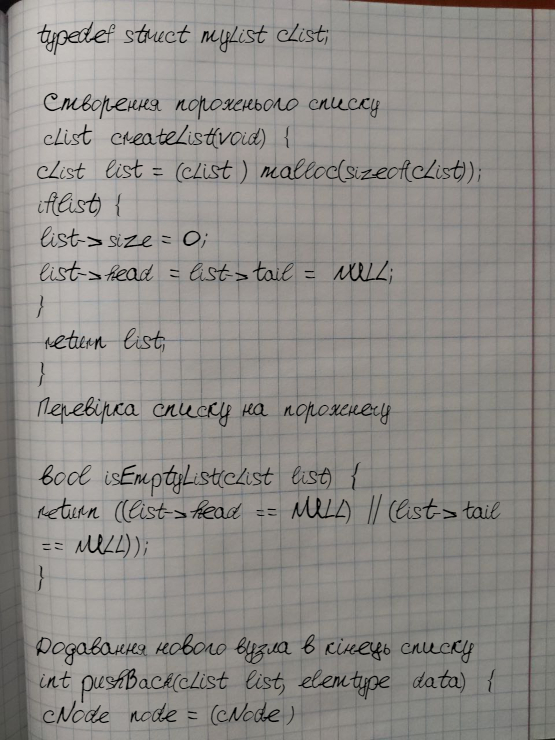 typedef struct myList cList;
Створення порожнього списку
cList createList(void) {
cList list = (cList ) malloc(sizeof(cList));
if(list) {
list->size = 0;
list->head = list->tail = NULL;
}
return list;
}
Перевірка списку на порожнечу
bool isEmptyList(cList list) {
return ((list->head == NULL) || (list->tail
== NULL));
}
Додавання нового вузла в кінець списку
int pushBack(cList list, elemtype data) {
cNode node = (cNode )